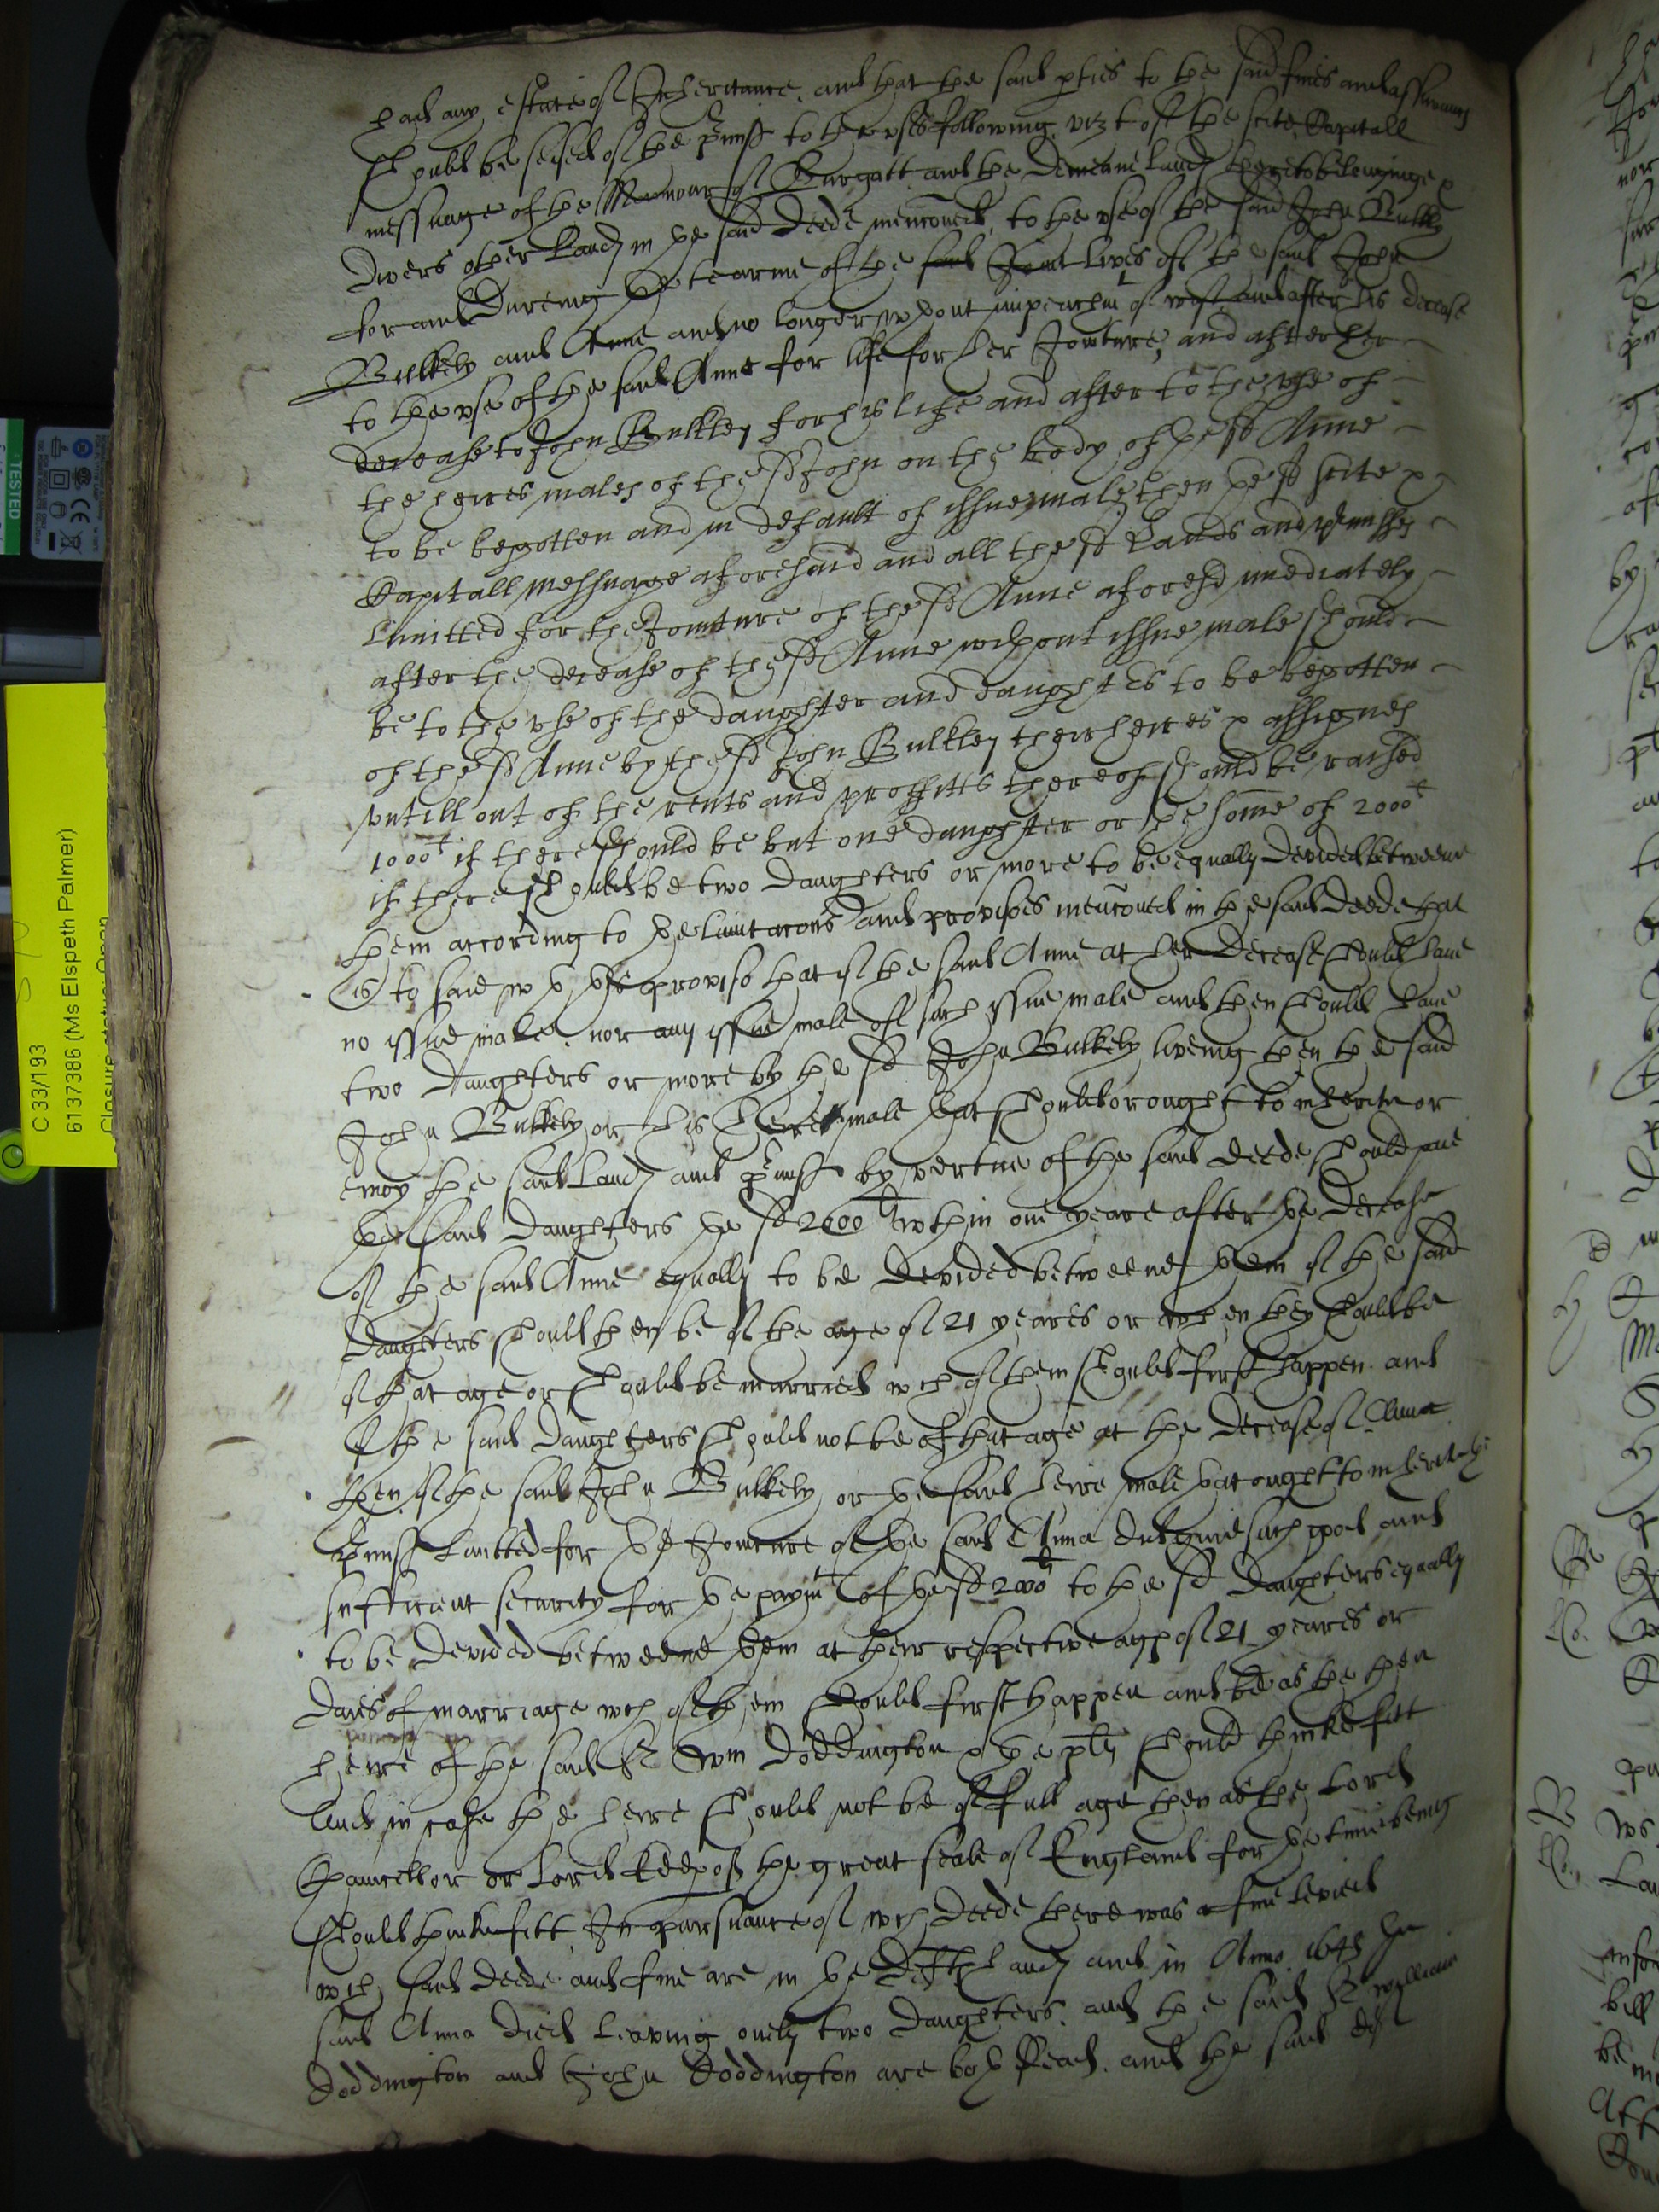 had any estate of Inheritance. and that the said pties to the said fines and assurances
should be seised of the pmiss to the uses following. vizt of the scite Capitall
messuage of the Mannour of Burgatt and the demeane Landes thereto belonginge &
divers other Landes in ye said deede menconed, to the use of the said John Bulkly
for and dureing ye tearme of the said Joint lives of the said John
Bulkely and Anne and no longer wthout impeachmt of wast and after his decease
to the use of the said Anne for life for her Jointure, and after her
decease to John Bulkley for his life and after to the use of
the heires males of the sd John on the body of the sd Anne
to be begotten and in default of issue male, then ye sd scite &
Capitall messuage aforesaid and all the sd Lands and pmisses
Limitted for the Jointure of the sd Anne aforesd imediately
after the decease of the sd Anne without issue male should
be to the use of the daughter and daughters to be begotten
of the sd Anne by the sd John Bulkley their heires & assignes
untill out of the rents and proffitts thereof should be raised
1000li if there should be but one daughter or ye some of 2000li
if there should be two daughters or more to be equally devided betweene
them according to ye limitacons and provisoes menconed in the said deede that
is to said wth ye proviso that if the said Anne at her decease should have
no issue male. nor any issue male of such issue male and then should have
two daughters or more by the sd John Bulkely liveing then the said
John Bulkely or his heire male that should or ought to inherit or
enioy the said Landes and pmiss by vertue of the said deede should pay
ye said daughters ye sd 2000li wthin one yeare after ye decease
of the said Anne equally to be devided betweene them if the said
daughters should then be of the age of 21 yeares or when they should be
of that age or should be married wch of them should first happen. and
if the said daughters should not be of that age at the decease of Anna
then if the said John Bulkely or ye said heire male that ought to inherit the
pmiss Limitted for ye Jointure of the said Anna did give such good and
sufficient security for ye paymt of ye sd 2000li to the sd daughters equally
to be devided betweene them at their respective ages of 21 yeares or
daies of marriage wch of them should first happen and be as the then
heire of the said Sr Wm Doddington & ye ptys should thinke fitt
And in case the heire should not be of full age then as the Lord
Chancellor or Lord Keep of the great seale of England for ye time being
should thinke fitt In pursuance of wch deede there was a fine levied
wch said deede and fine are in ye Defts hands and in Anno 1648 the
said Anna died leaving onely two daughters. and the said Sr William
Doddington and John Doddington are both dead. and the said deft
TESTED
C 33/193
6137386 (Ms Elspeth Palmer)